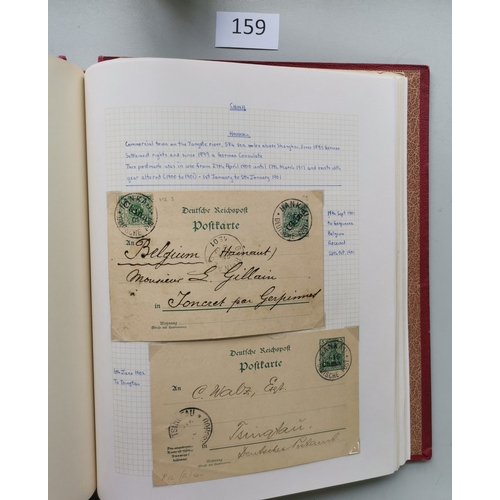 159
China
Hankau
Commercial town on the Yangtse river, 586 sea miles above Shanghai. Since 1895 German
Settlement rights and since 1899 a German Consulate
This postmark was in use from 24th April 1900 until 17th March 1917 and exists with
year altered (1900 to 1901) - 1st January to 5th January 1901
Deutsche Reichspost
Postkarte
An
Belgium (Hainaut)
Monsieur L. Gillain
in Joncret par Gerpinnes
Wohnung
19th Sept 1901
to Gerpinnes
Belgium
Received
Deutsche Reichspost
Postkarte
An
C. Walz, Esq
Tsingtau.
Deutsche Postamt
TSINGTAU
Wohnung
6th June 1902
To Tsingtau
HANKAU
China